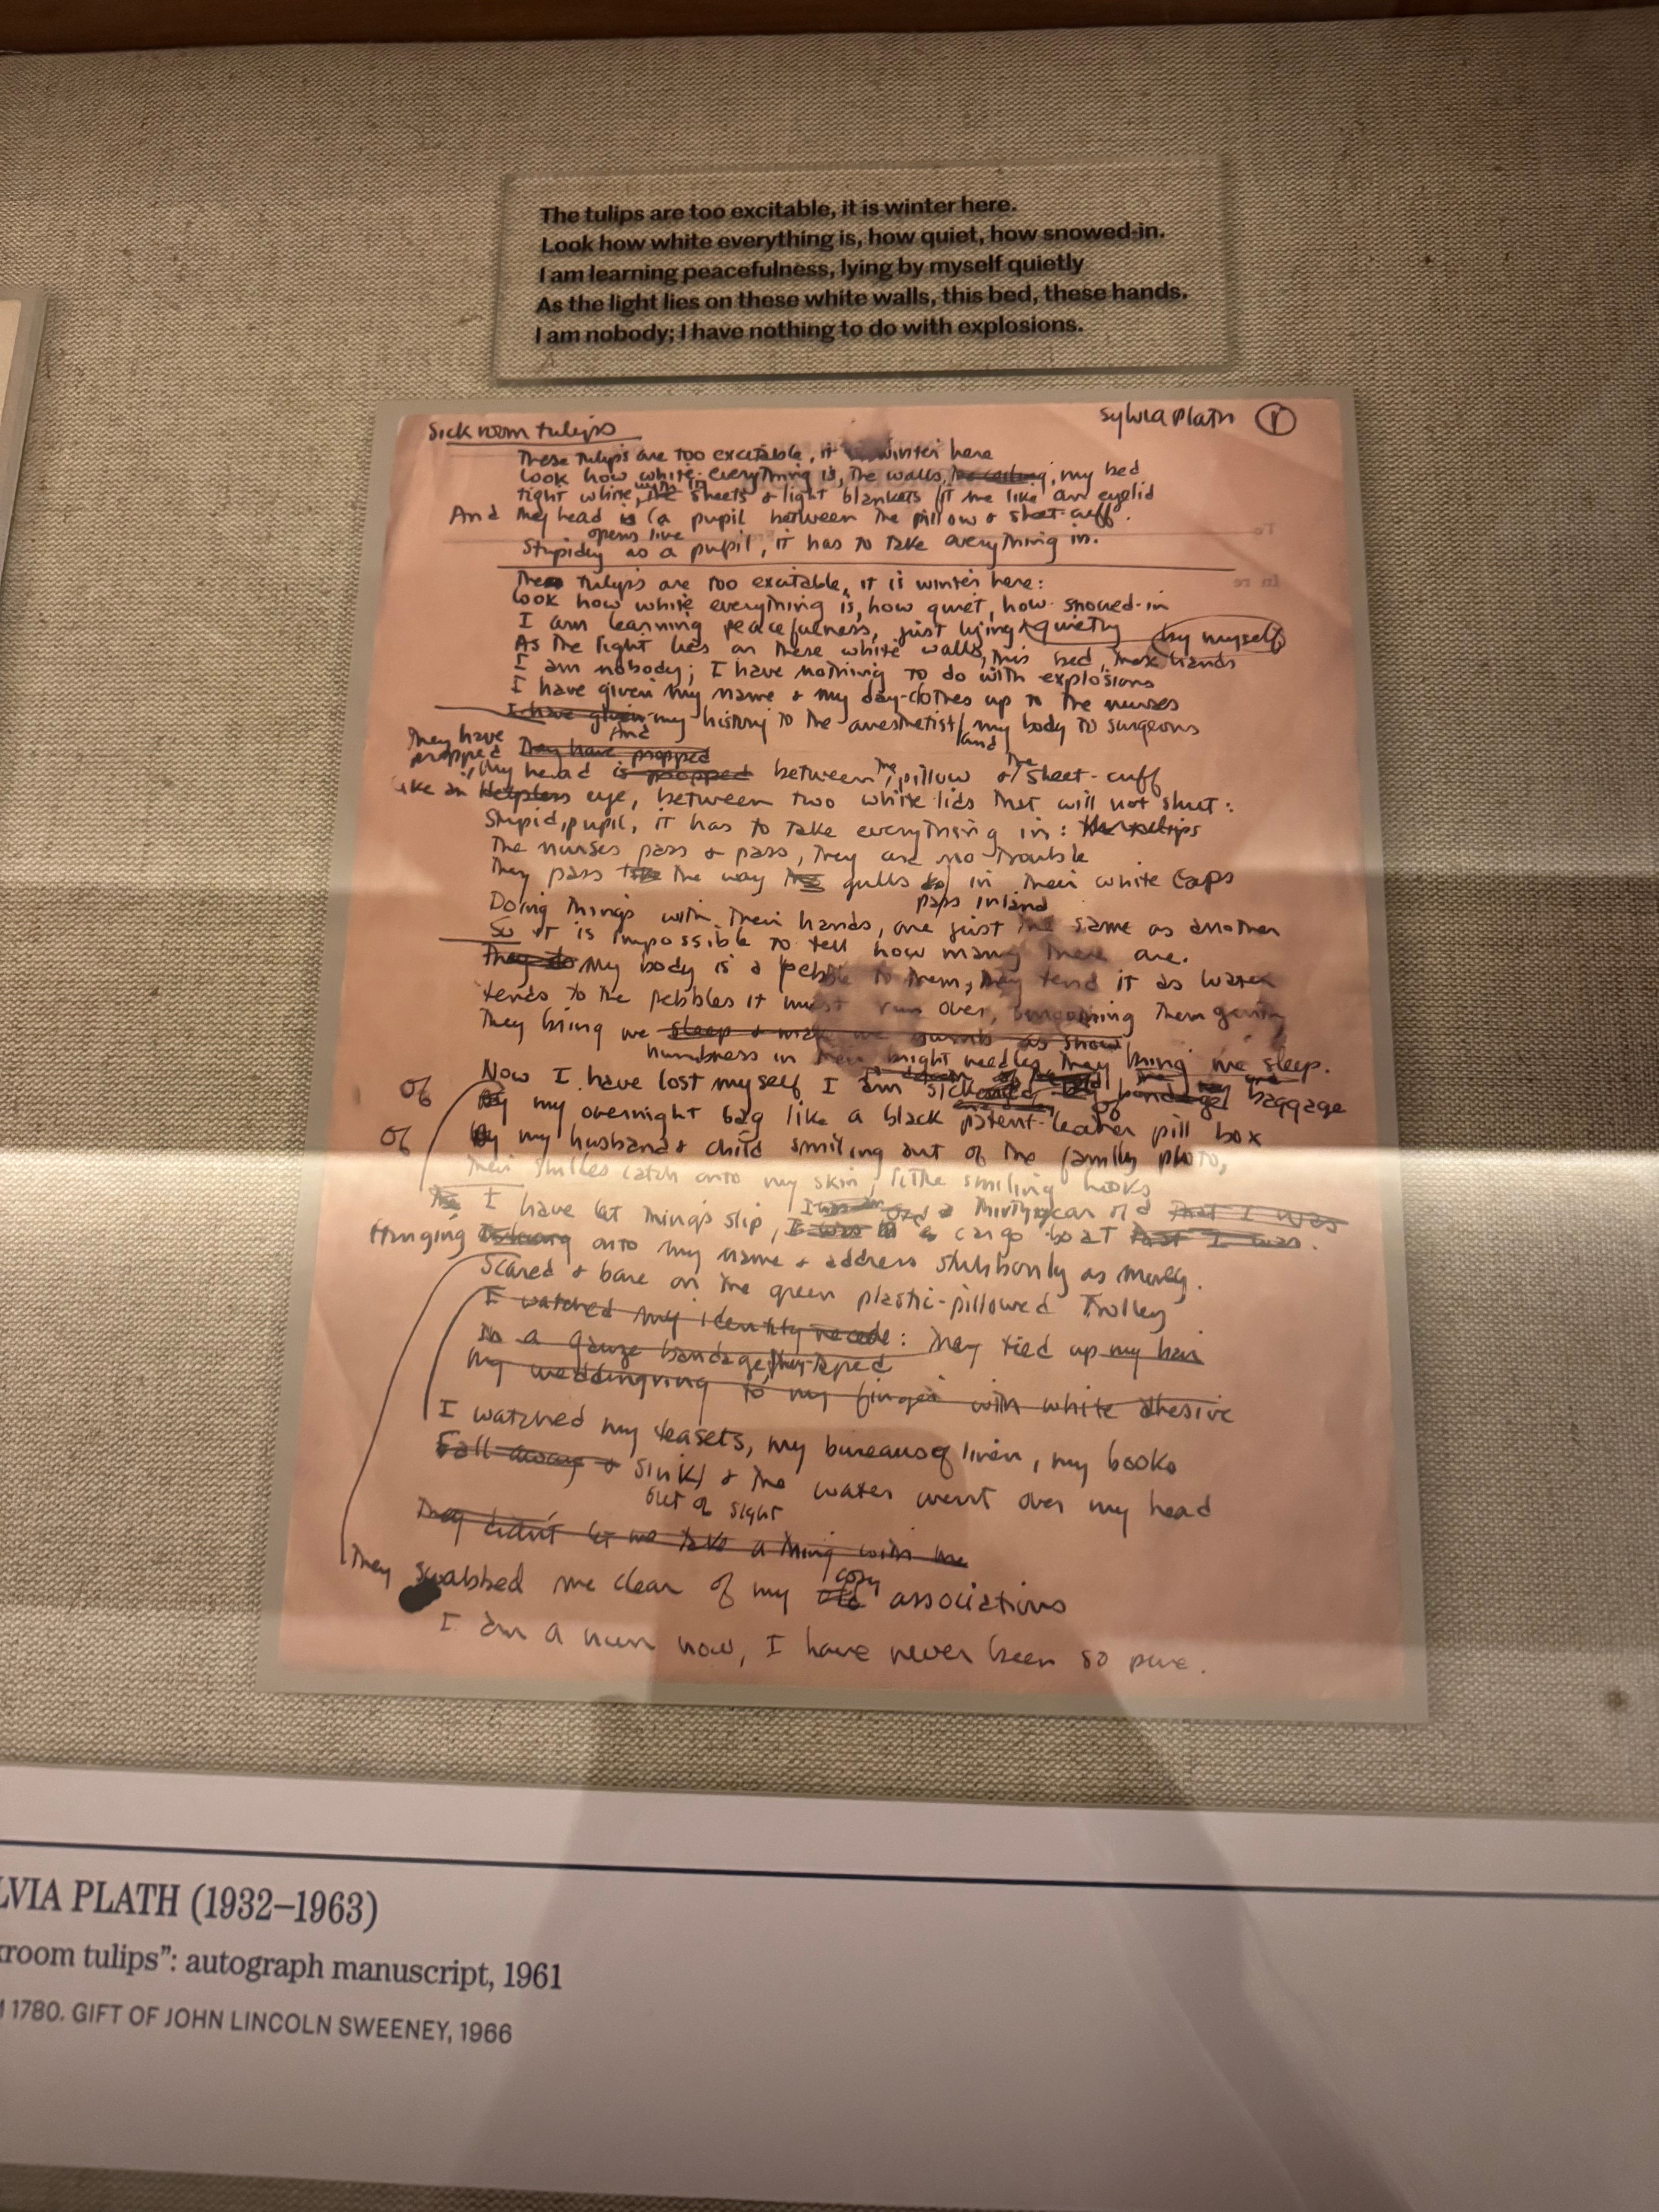 The tulips are too excitable, it is winter here.
Look how white everything is, how quiet, how snowed-in.
I am learning peacefulness, lying by myself quietly
As the light lies on these white walls, this bed, these hands.
I am nobody; I have nothing to do with explosions.
Sylvia Plath 1
Sick room tulips
These tulips are too excitable, it winter here
Look how white everything is, the walls, the ceiling, my bed
tight white, the sheets & light blankets fit me like an eyelid
And my head is a pupil between the pillow & sheet-cuff.
opens like
Stupidly as a pupil, it has to take everything in.
To
In re
These tulips are too excitable, it is winter here:
Look how white everything is, how quiet, how snowed-in
I am learning peacefulness, just lying quietly by myself
As the light lies on these white walls, this bed, these hands
I am nobody; I have nothing to do with explosions
I have given my name & my day-clothes up to the nurses
I have given my history to the anesthetist / my body to surgeons
And and
They have
propped They have propped
My head is propped between the pillow & the sheet-cuff
like an Helpless eye, between two white lids that will not shut:
Stupid, pupil, it has to take everything in: The tulips
The nurses pass & pass, they are no trouble
They pass the way gulls in their white caps
pass inland
Doing things with their hands, one just the same as another
So it is impossible to tell how many there are.
They do My body is a pebble to them, they tend it as water
tends to the pebbles it must run over, smoothing them gently
They bring me sleep & make me numb as snow
numbness in their bright needles they bring me sleep.
Now I have lost myself I am sick of baggage
Of By my overnight bag like a black patent-leather pill box
Of By my husband & child smiling out of the family photo,
Their smiles catch onto my skin, little smiling hooks
I have let things slip, I was a thirty year old that I was
I was a cargo boat that I was.
Hanging onto my name & address stubbornly
Scared & bare on the green plastic-pillowed trolley
I watched my identity recede: They tied up my hair
In a gauze bandage, they taped
My wedding ring to my finger with white adhesive
I watched my teasets, my bureaus of linen, my books
Fall away & sink & the water went over my head
out of sight
They didn't let me take a thing with me
They swabbed me clear of my old associations
I am a nun now, I have never been so pure.
LVIA PLATH (1932–1963)
kroom tulips”: autograph manuscript, 1961
1780. GIFT OF JOHN LINCOLN SWEENEY, 1966